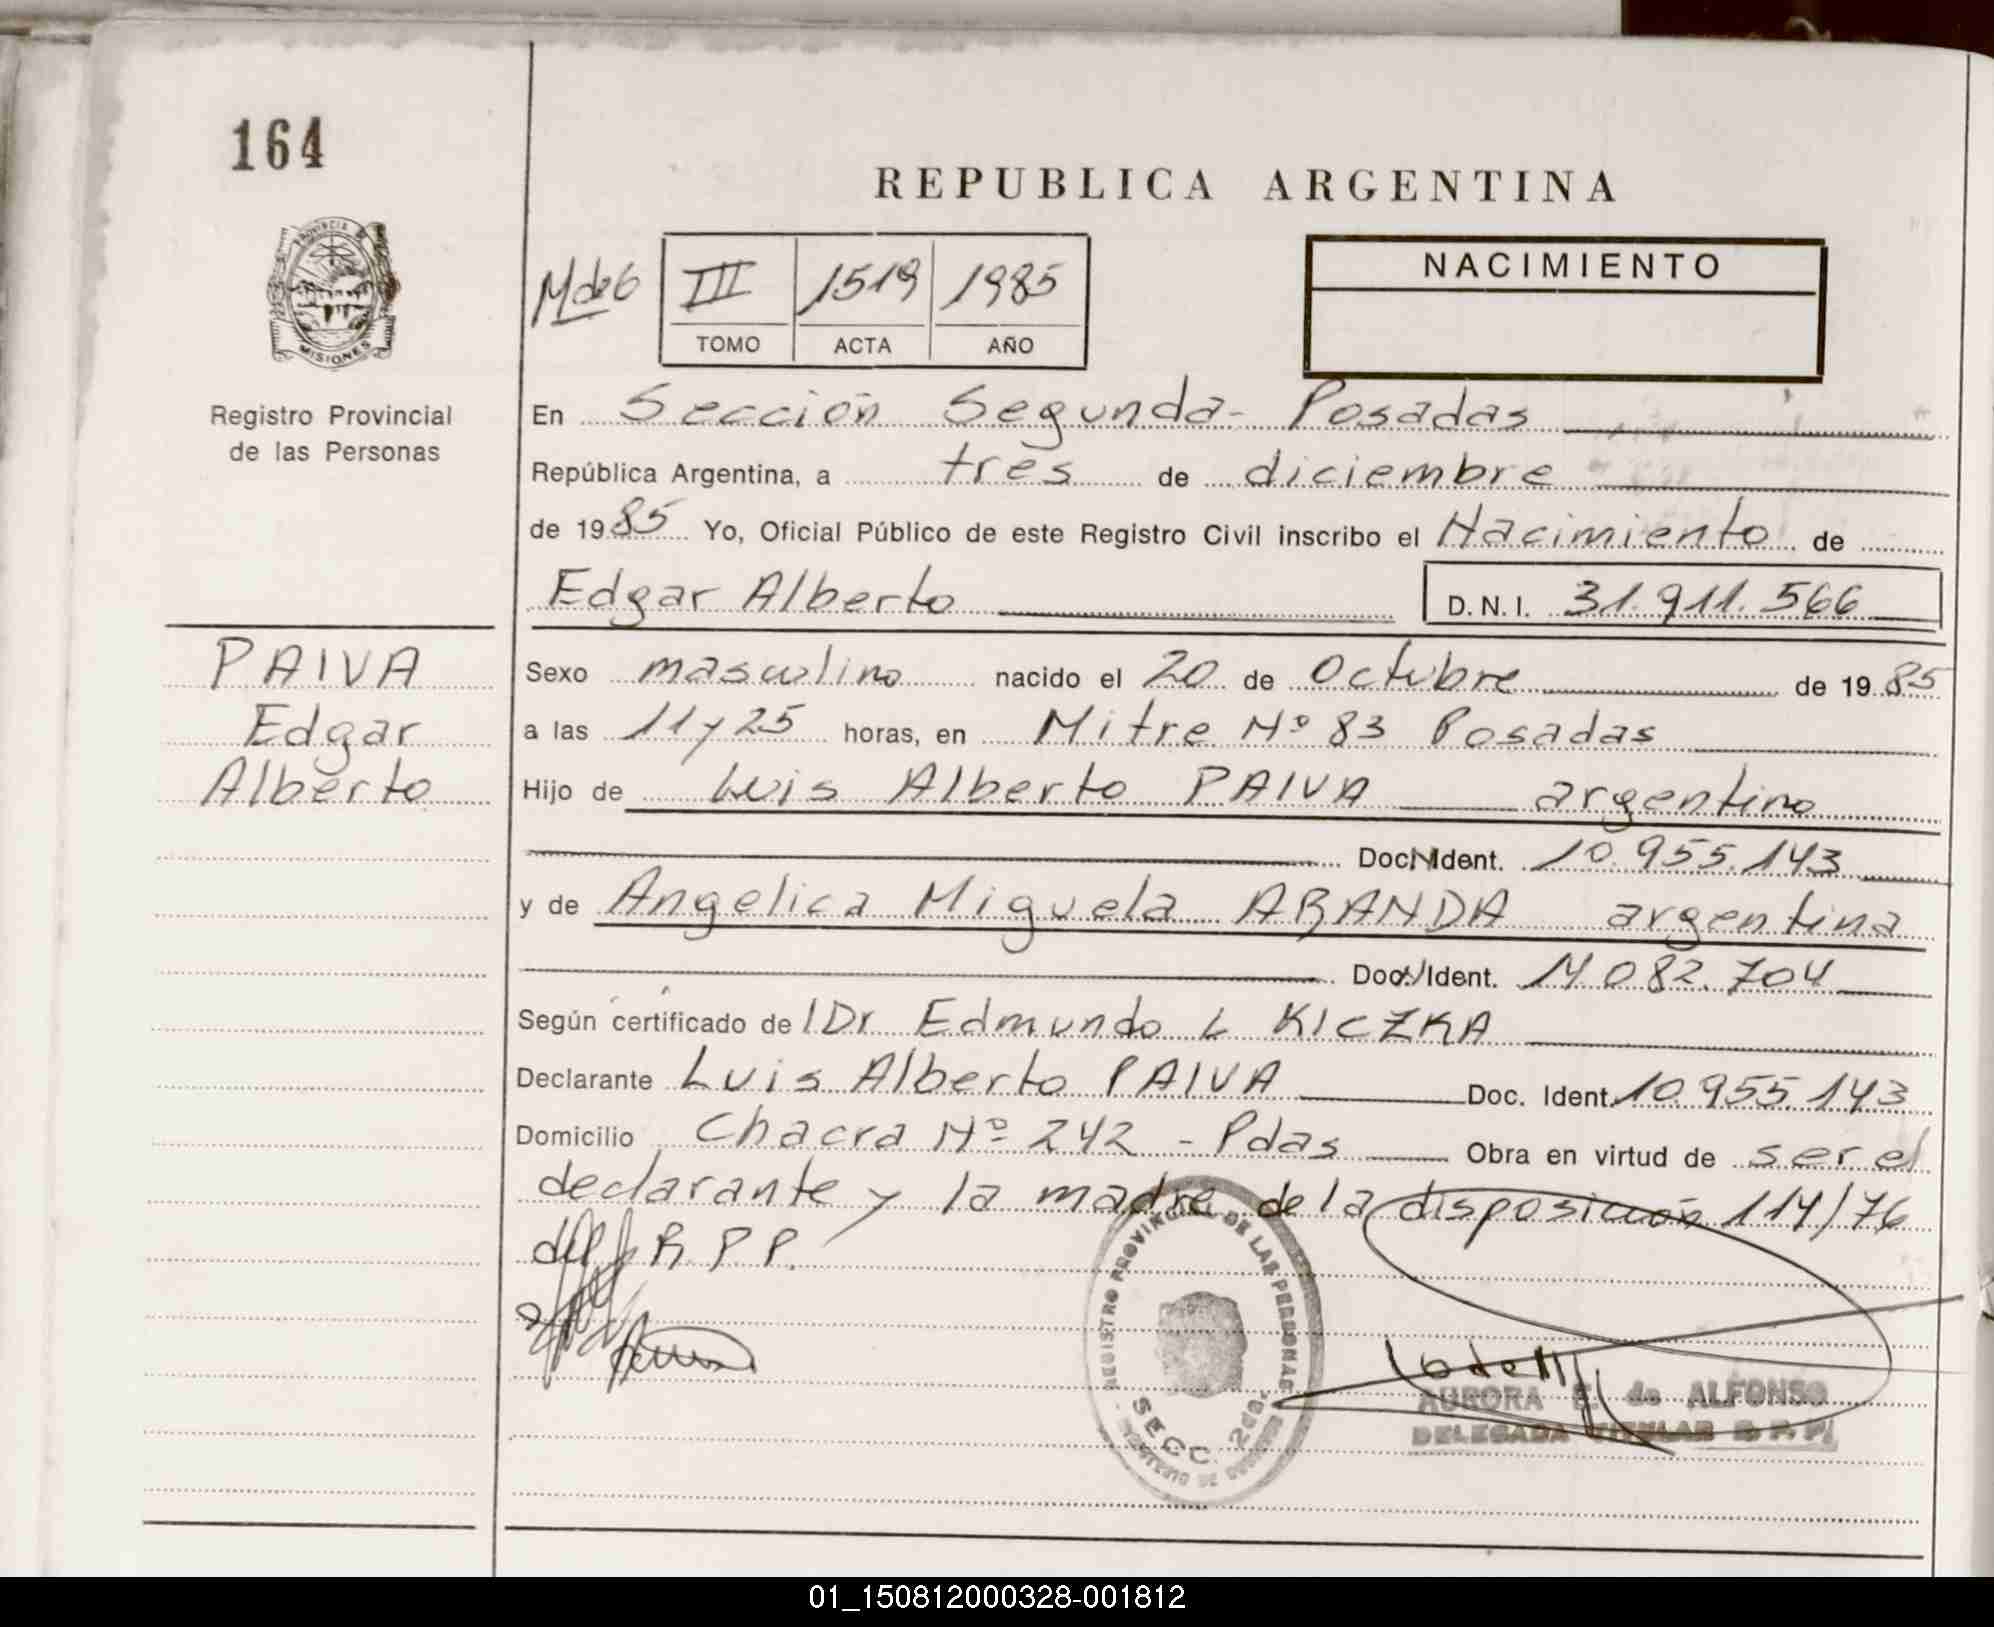 164
REPUBLICA ARGENTINA
PROVINCIA DE
MISIONES
Registro Provincial
de las Personas
III 1519 1985
TOMO ACTA AÑO
NACIMIENTO
En Sección Segunda - Posadas
República Argentina, a tres de diciembre
de 1985 Yo, Oficial Público de este Registro Civil inscribo el Nacimiento de
Edgar Alberto D.N.I. 31.911.566
PAIVA
Edgar
Alberto
Sexo masculino nacido el 20 de Octubre de 1985
a las 11 y 25 horas, en Mitre Nº 83 Posadas
Hijo de Luis Alberto PAIVA argentino
Doc. Ident. 10.955.143
y de Angelica Miguela ARANDA argentina
Doc. Ident. 11.082.704
Según certificado del Dr Edmundo L KICZKA
Declarante Luis Alberto PAIVA Doc. Ident. 10.955.143
Domicilio Chacra Nº 242 - Pdas Obra en virtud de ser el
declarante y la madre de la disposición 114/76
del R.P.P.
REGISTRO PROVINCIAL DE LAS PERSONAS
SECC. 2da.
AURORA E. de ALFONSO
DELEGADA TITULAR R.P.P.
01_150812000328-001812